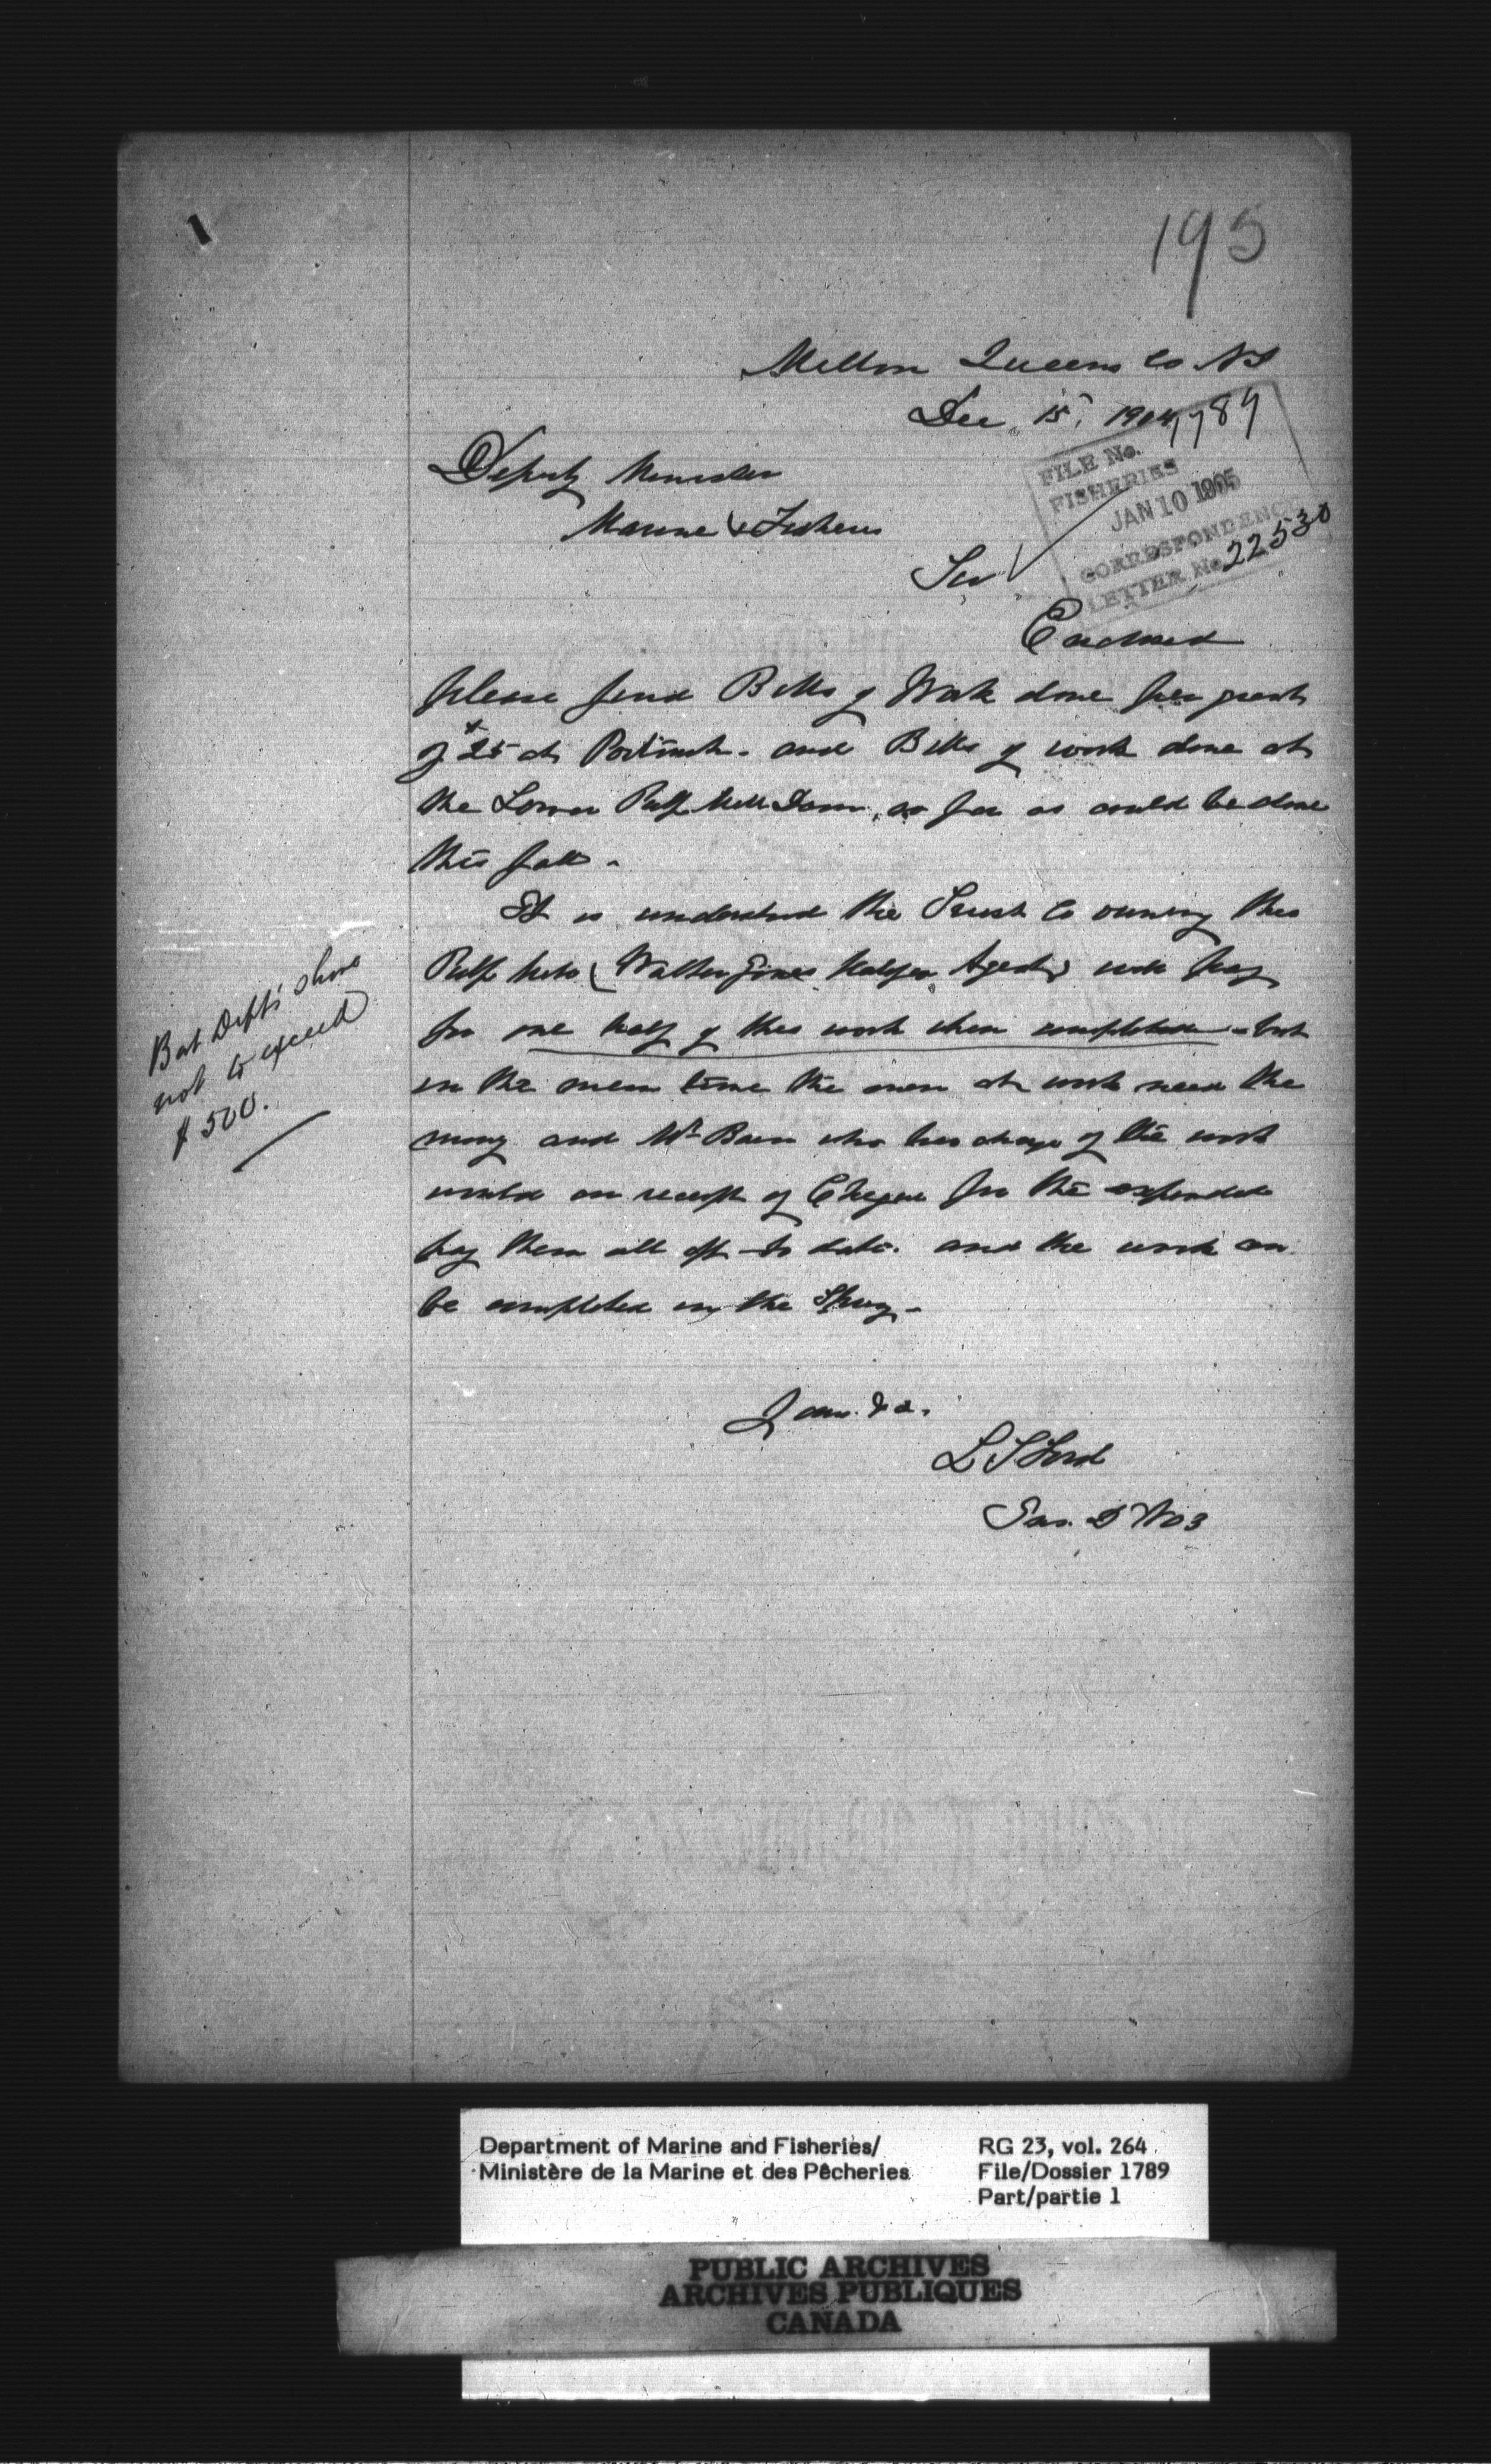 1
195
Milton Queens Co NS
Dec. 15, 1904
1789
FILE No.
FISHERIES
JAN 10 1905
CORRESPONDENCE
LETTER No. 22530
Deputy Minister
Marine & Fisheries
Sir
Enclosed
please find Bills of Work done per grant
of $25 at and Bills of work done at
the Lower Pulp Mill Dam, as far as could be done
this fall -
It is understood the Trust Co owning this
Pulp Mills (Walter Jones Halifax Agent) will pay
for one half of this work when completed - but
in the mean time the men at work need the
money and Mr who has charge of the work
would on receipt of Cheque for the expended
pay them all off to date. and the work can
be completed in the Spring -
But Dept's share
not to exceed
$500.
I am &c.
L S Ford
Ins. D No 3
Department of Marine and Fisheries/
Ministère de la Marine et des Pêcheries
RG 23, vol. 264
File/Dossier 1789
Part/partie 1
PUBLIC ARCHIVES
ARCHIVES PUBLIQUES
CANADA